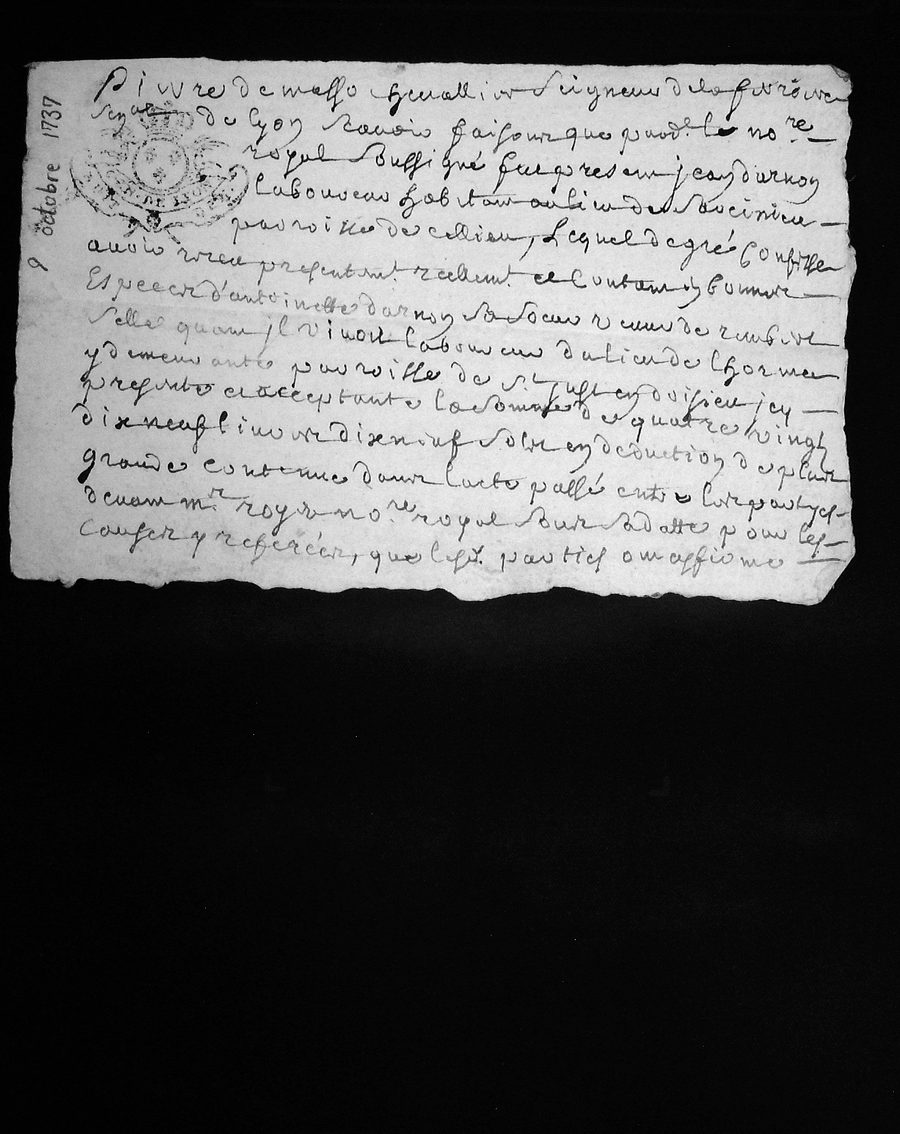 9 octobre 1737
Pierre de masso chevallier Seigneur de la ferriere
Sen.al de lyon scavoir faisons que pard.t le no.re
royal soussigné fut present jean darnon
laboureur habitant au lieu de
parroisse de cellieu, Lequel de gré Confesse
avoir receu presentem.t reellem.t et Contant en bonnes
Especes d'antoinette darnon sa soeur veuve de
vivoit laboureur du lieu de lhorme
y demeurante parroisse de S.t just en doisieu jcy
presente et acceptante la somme de quatre vingt
dix neuf livres dix neuf sols en deduction de plus
grande contenue dans lacte passé entre les partyes
devant m.r royer no.re royal sous sa datte pour les
causes y referées, que lesd. parties ont affirmé